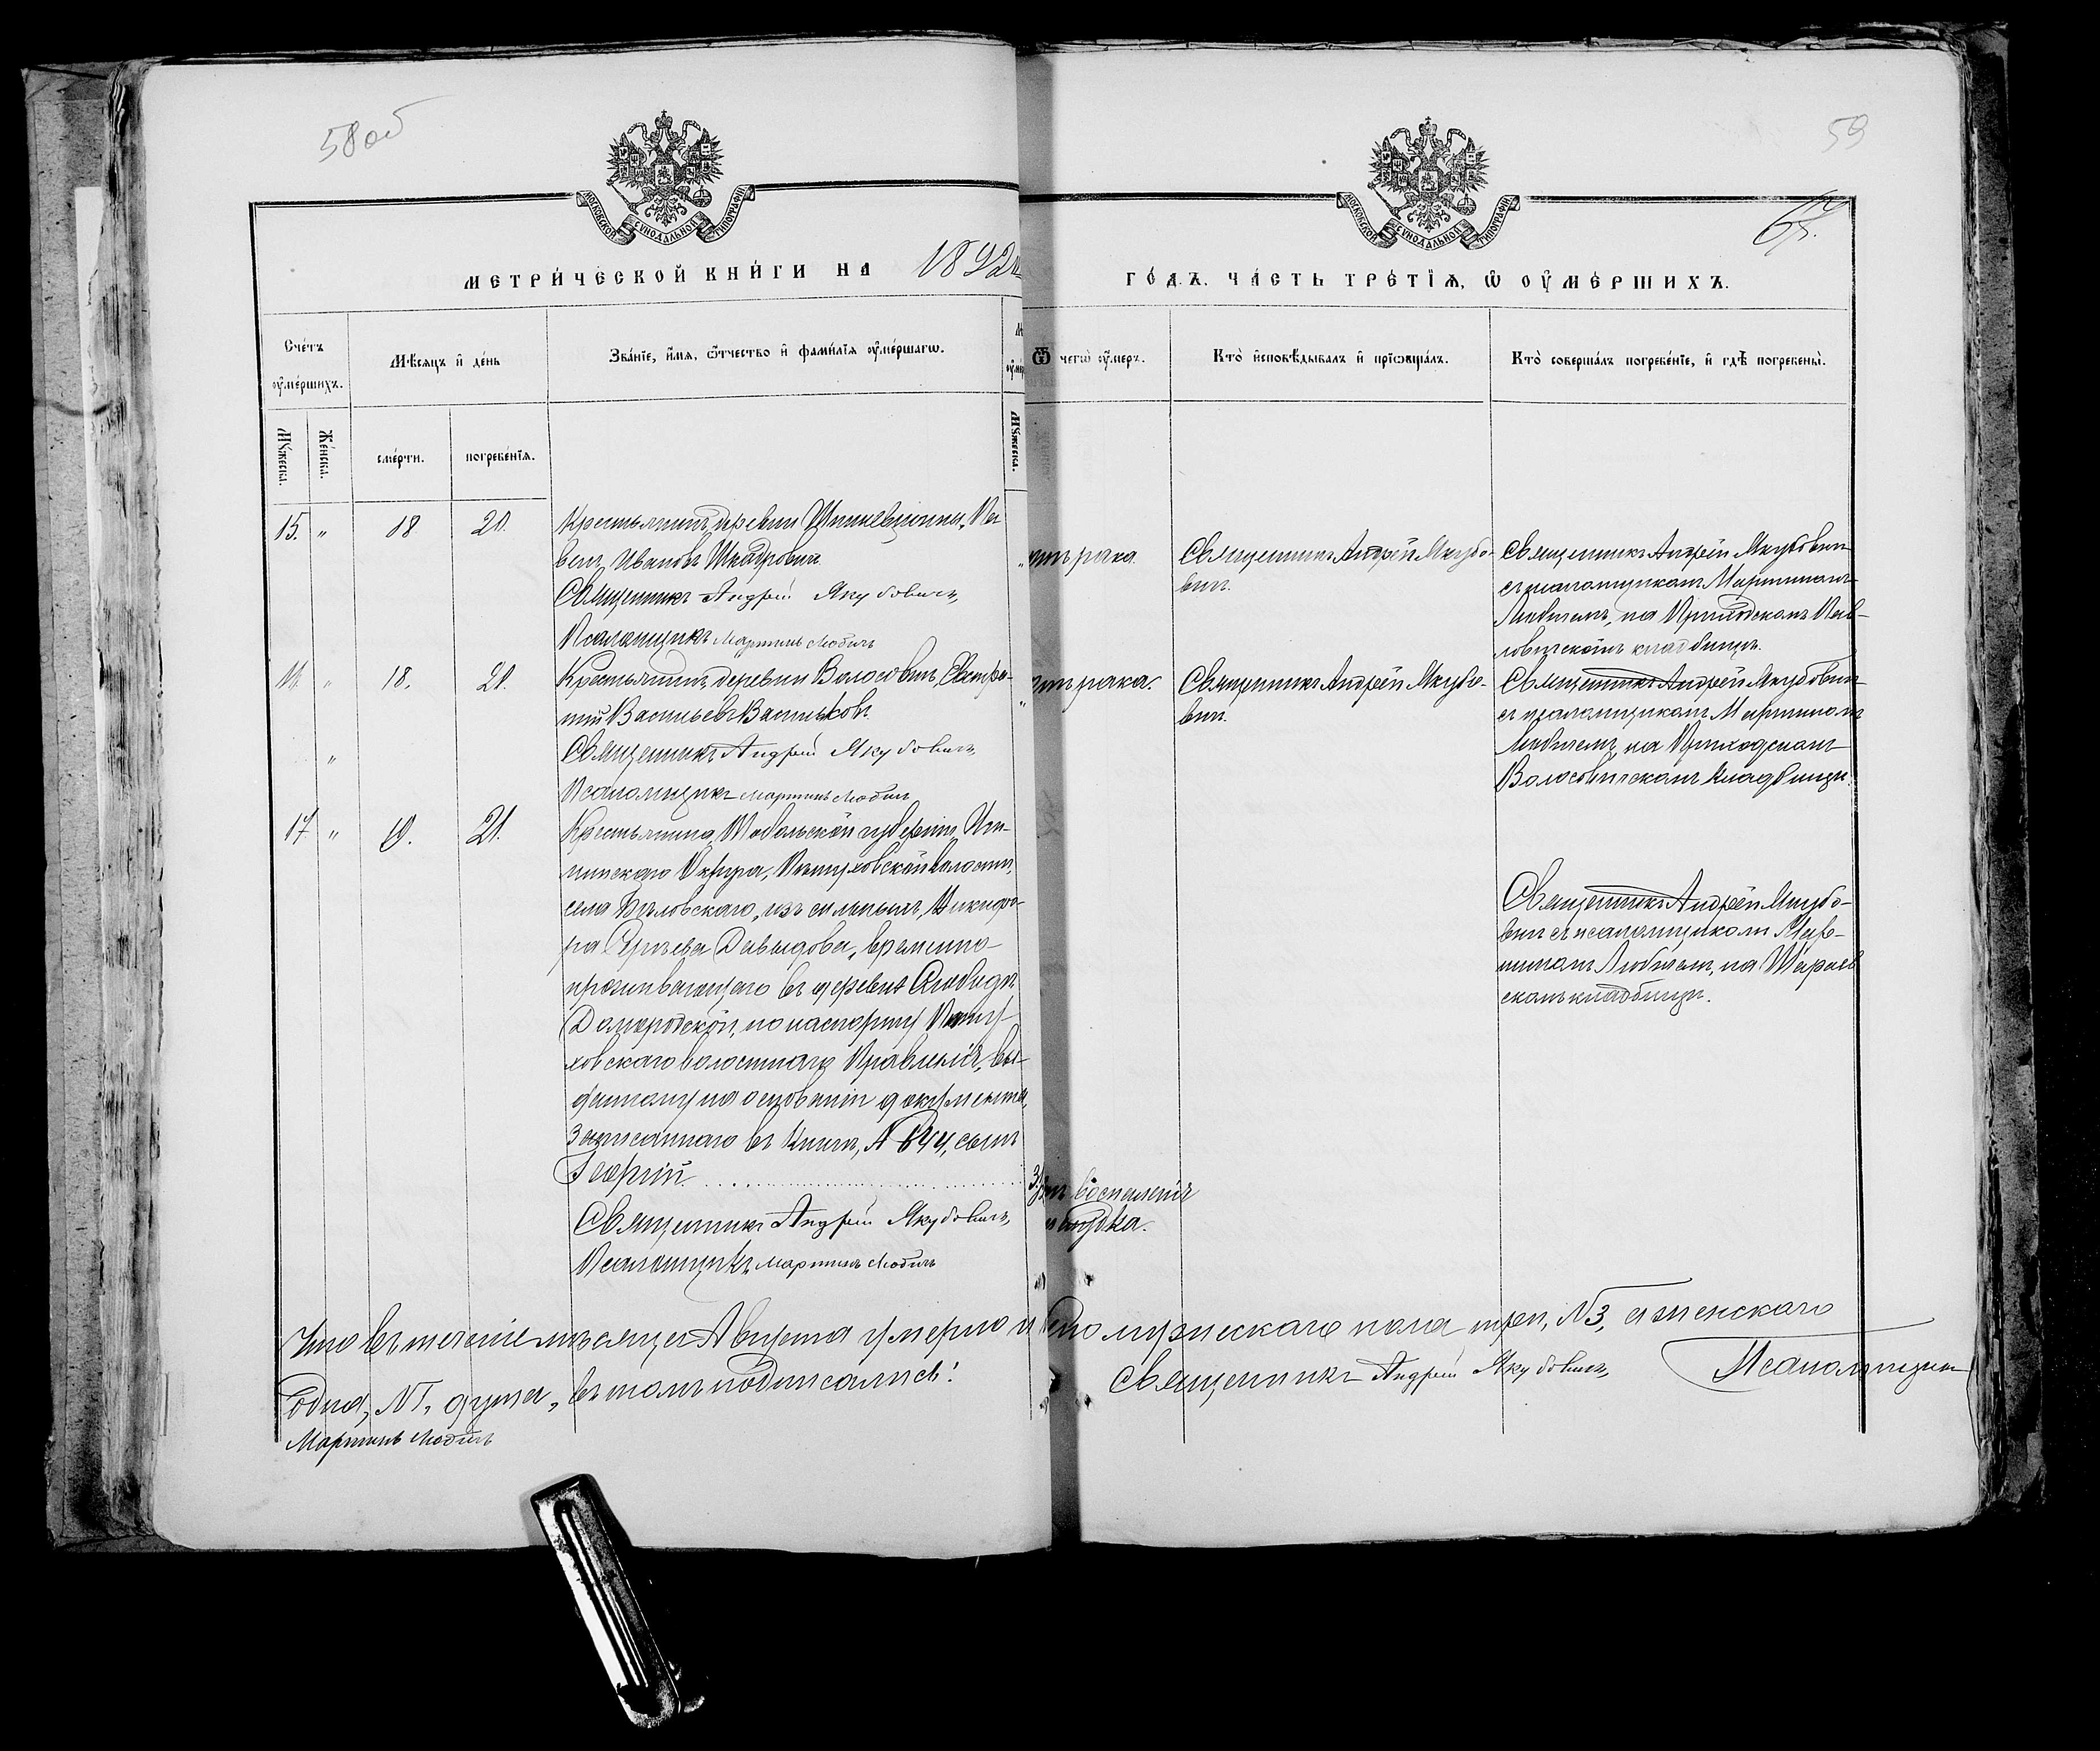 58 об
59
МОСКОВСКОЙ СѴНОДАЛЬНОЙ ТИПОГРАФІИ
МОСКОВСКОЙ СѴНОДАЛЬНОЙ ТИПОГРАФІИ
МЕТРИ́ЧЕСКОЙ КНИ́ГИ НА 1892
ГО́ДЪ, ЧА́СТЬ ТРЕ́ТІѦ, Ѡ ОУ҆МЕ́РШИХЪ.
Сче́тъ оу҆ме́ршихъ.
Мѣ́сяцъ и҆ де́нь
Зва́ніе, и҆́мѧ, ѻ҆́тчество и҆ фами́лїѧ оу҆ме́ршагѡ.
Ѿ чегѡ̀ оу҆́меръ.
Кто̀ и҆сповѣ́дывалъ и҆ прїѡбща́лъ.
Кто̀ соверша́лъ погребе́нїе, и҆ гдѣ̀ погребены̀.
Мꙋ́жеска.
Же́нска.
сме́рти.
погребе́нїѧ.
Мꙋ́жеска.
15. " 18 21.
Крестьянинъ деревни Па-
велъ Ивановъ
Священникъ Андрей Якубовичъ,
Псаломщикъ Мартинъ Любичъ
рака.
Священникъ Андрей Якубо-
вичъ.
Священникъ Андрей Якубовичъ
съ псаломщикомъ Мартиномъ
Любичемъ, на Приходскомъ Пав-
ловичскомъ кладбищѣ.
16. " 18. 21.
Крестьянинъ деревни Волосовичъ,
Васильевъ Васильковъ.
Священникъ Андрей Якубовичъ,
Псаломщикъ Мартинъ Любичъ
рака.
Священникъ Андрей Якубо-
вичъ.
Священникъ Андрей Якубовичъ
съ псаломщикомъ Мартиномъ
Любичемъ, на Приходскомъ
Волосовичскомъ кладбищѣ.
17 " 19. 21.
Крестьянина Тобольской губерніи, Иши-
мскаго Округа, Пѣтуховской волости,
села Бѣловскаго, изъ сыльныхъ, Никифо-
ра Сергѣева Давыдова, временно-
проживающаго въ деревнѣ Слободѣ
по паспорту Пѣту-
ховскаго волостнаго Правленія, вы-
данному на основаніи документа,
Записаннаго въ Книгѣ, № 644, сынъ
Георгій
Священникъ Андрей Якубовичъ,
Псаломщикъ Мартинъ Любичъ
3
воспаленія
желудка.
Священникъ Андрей Якубо-
вичъ съ псаломщикомъ Мар-
тиномъ Любичемъ, на
скомъ кладбищѣ.
Что въ теченіе мѣсяца Августа умерло мужескаго пола три, №3, а женскаго
одна, №1, душа, въ томъ подписались: Священникъ Андрей Якубовичъ, Псаломщикъ
Мартинъ Любичъ